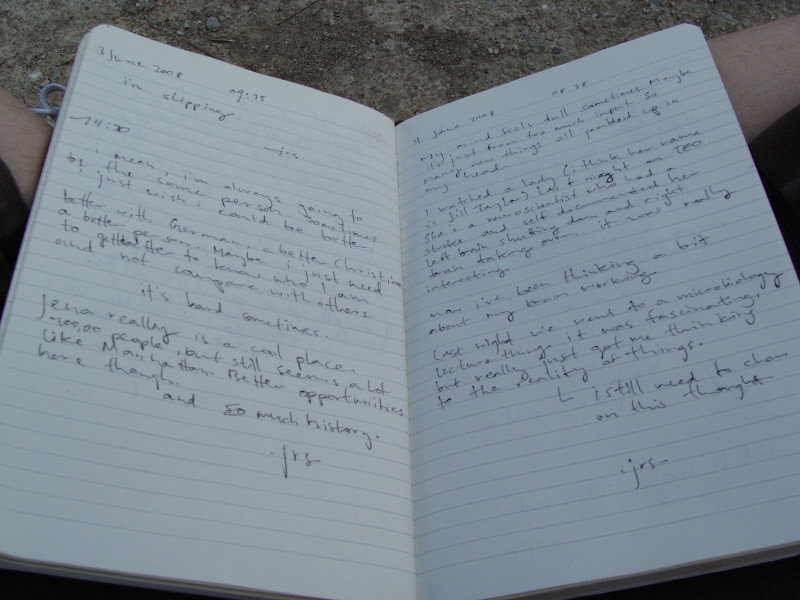 3 June 2008 09:35
i'm slipping
-jrs
14:30
i mean, i'm always going to
be the same person, sometimes
i just wish i could be better
better with German, a better Christian
a better person. Maybe i just need
to get better to know who I am
and not compare with others.
it's hard sometimes.
Jena really is a cool place.
people, but still seems a lot
like Manhattan. Better opportunities
here though.
and so much history.
.jrs
4 June 2008 08:38
My mind feels dull sometimes. Maybe
it's just from too much input. so
many new things all jumbled up in
my head.
I watched a lady (i think her name
is Jill Taylor) last night on TED
she's a neuroscientist who had a
stroke and self documented her
left brain shutting down and right
brain taking over. it was really
interesting.
now i've been thinking a bit
about my brain working.
Last night we went to a microbiology
lecture thing. it was fascinating,
but really just got me thinking
to the reality of things.
L i still need to chew
on this thought
.jrs-